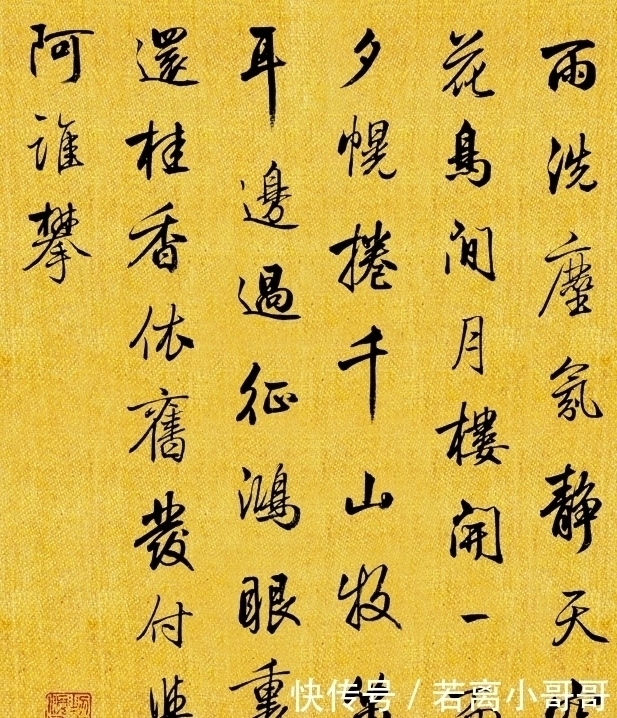 雨洗塵氛靜天
花鳥間月樓開一
夕幌捲千山牧
耳邊過征鴻眼重
還桂香依舊發付
阿誰攀
快传号 / 若离小哥哥